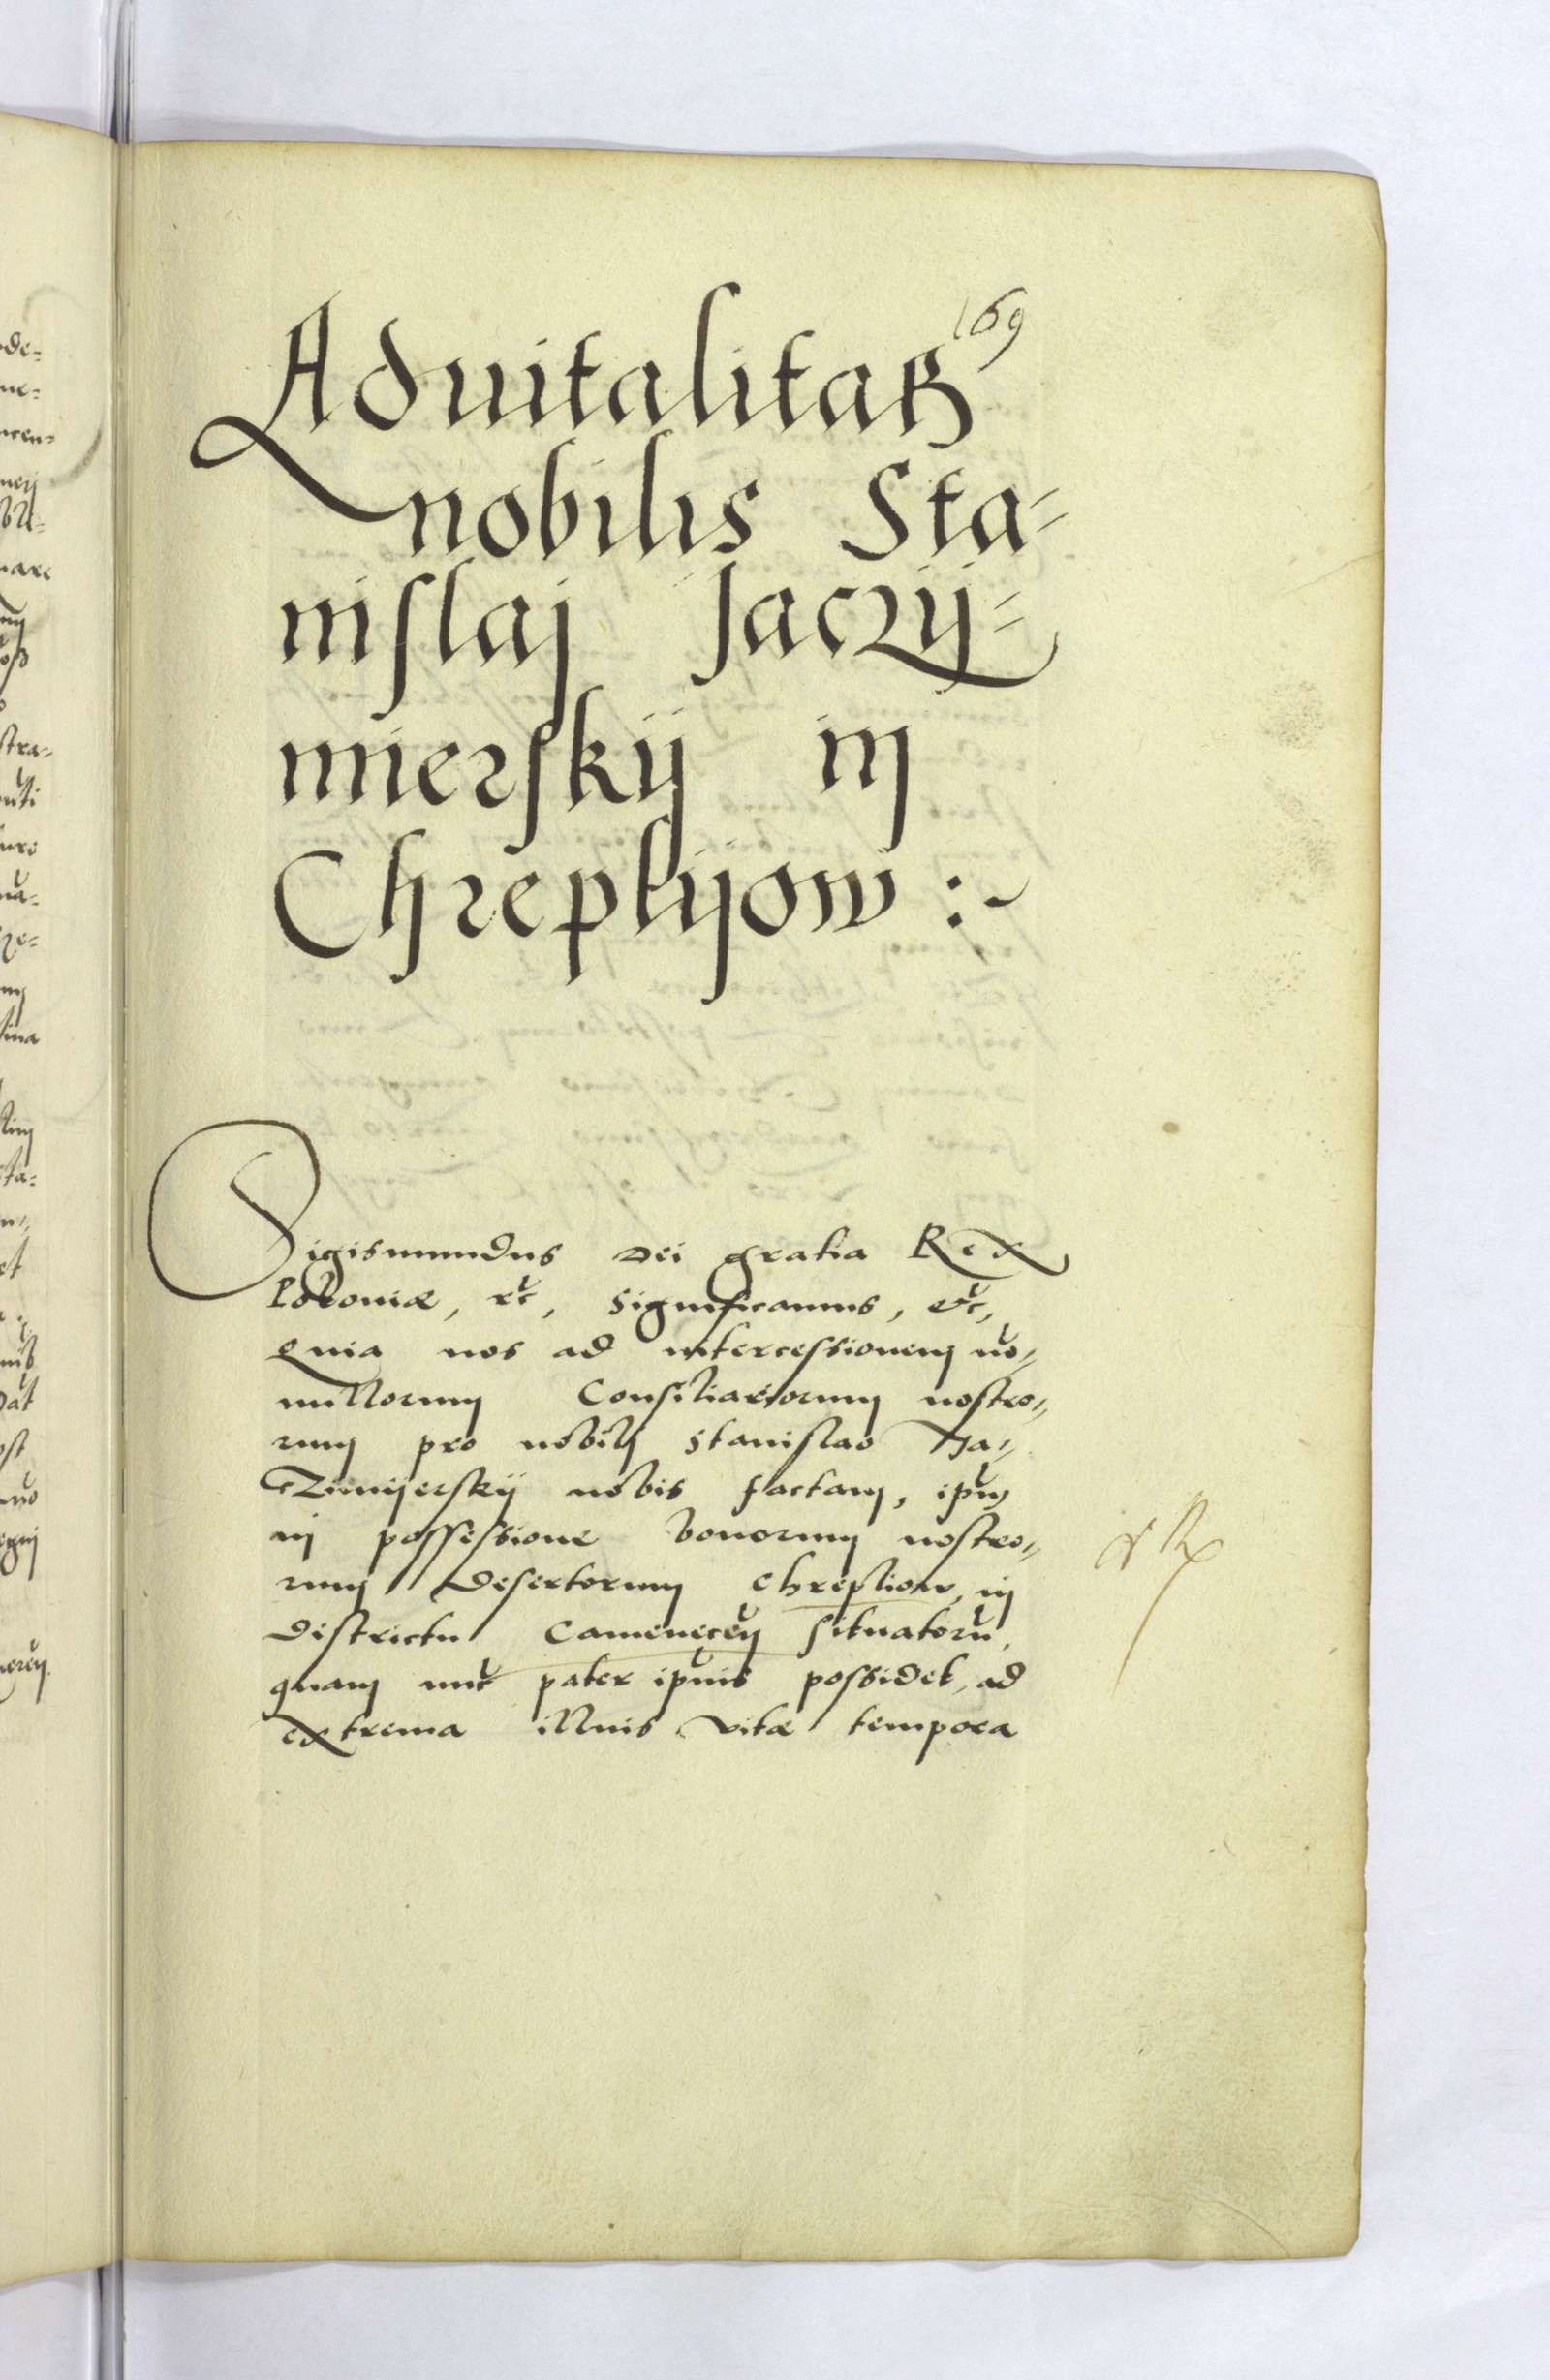 169
Aduitalitas
nobilis Sta-
nislaj Jaczij-
mierskij in
Chreptijow :~
Sigismundus Dei gratia Rex
Poloniæ, etc, Significamus, etc,
Quia nos ad intercessionem no-
nullorum Consiliariorum nostro-
rum pro nobilj Stanislao Ja-
czimijerskij nobis factam, ipm
in possessione bonorum nostro-
rum desertorum Chreptiow, in
districtu Camenecen situatoru,
quam nuc pater ipius possidet, ad
extrema illius vitæ tempora